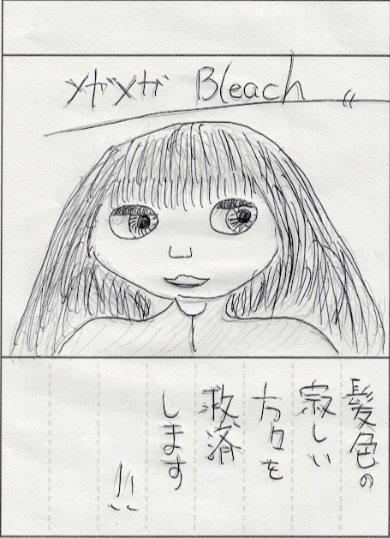 メガメガ Bleach
髪色の
寂しい
方々を
救済
します
!!